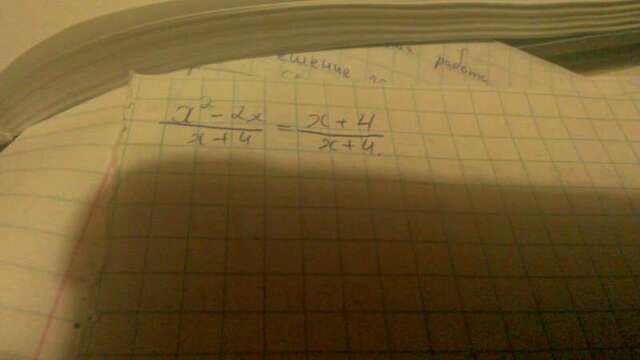 ешение по
работа
x² - 2x / x + 4 = x + 4 / x + 4.